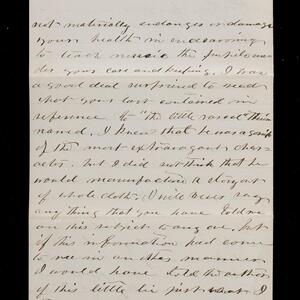 not materially endanger or damage
your health in endeavoring
to teach music the pupils un-
der your care and keeping. I was
a good deal surprised to read
what your last contained in
reference to "the little rascal" Thine
named. I knew that he was a
of the most extravagant char-
acter. but I did not think that he
would manufacture a story out
of whole cloth. I will never say
any thing that you have told me
on this subject to any one. but
if this information had come
to me in an other manner.
I would have told the author
of this little lie just what I